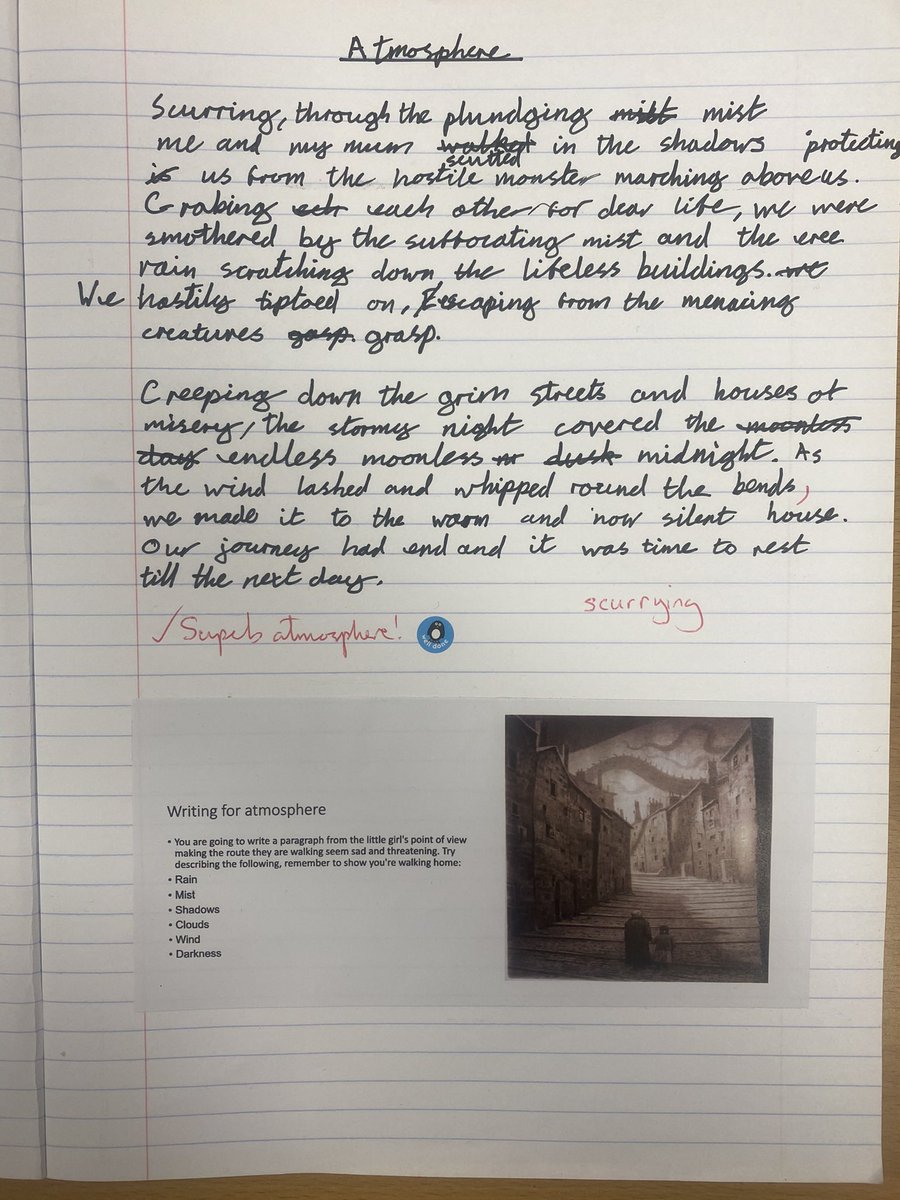 Atmosphere
Scurring, through the plundging mist mist
me and my mum walked scutted in the shadows protecting
is us from the hostile monster marching above us.
Grabing ech each other for dear life, we were
smothered by the suffocating mist and the eree
rain scratching down the lifeless buildings. we
We hastily tiptoed on, Escaping from the menacing
creatures gasp. grasp.
Creeping down the grim streets and houses of
misery, the stormy night covered the moonless
day endless moonless dusk midnight. As
the wind lashed and whipped round the bends,
we made it to the warm and now silent house.
Our journey had end and it was time to rest
till the next day.
scurrying
✓ Superb atmosphere!
well done
Writing for atmosphere
• You are going to write a paragraph from the little girl's point of view
making the route they are walking seem sad and threatening. Try
describing the following, remember to show you're walking home:
• Rain
• Mist
• Shadows
• Clouds
• Wind
• Darkness